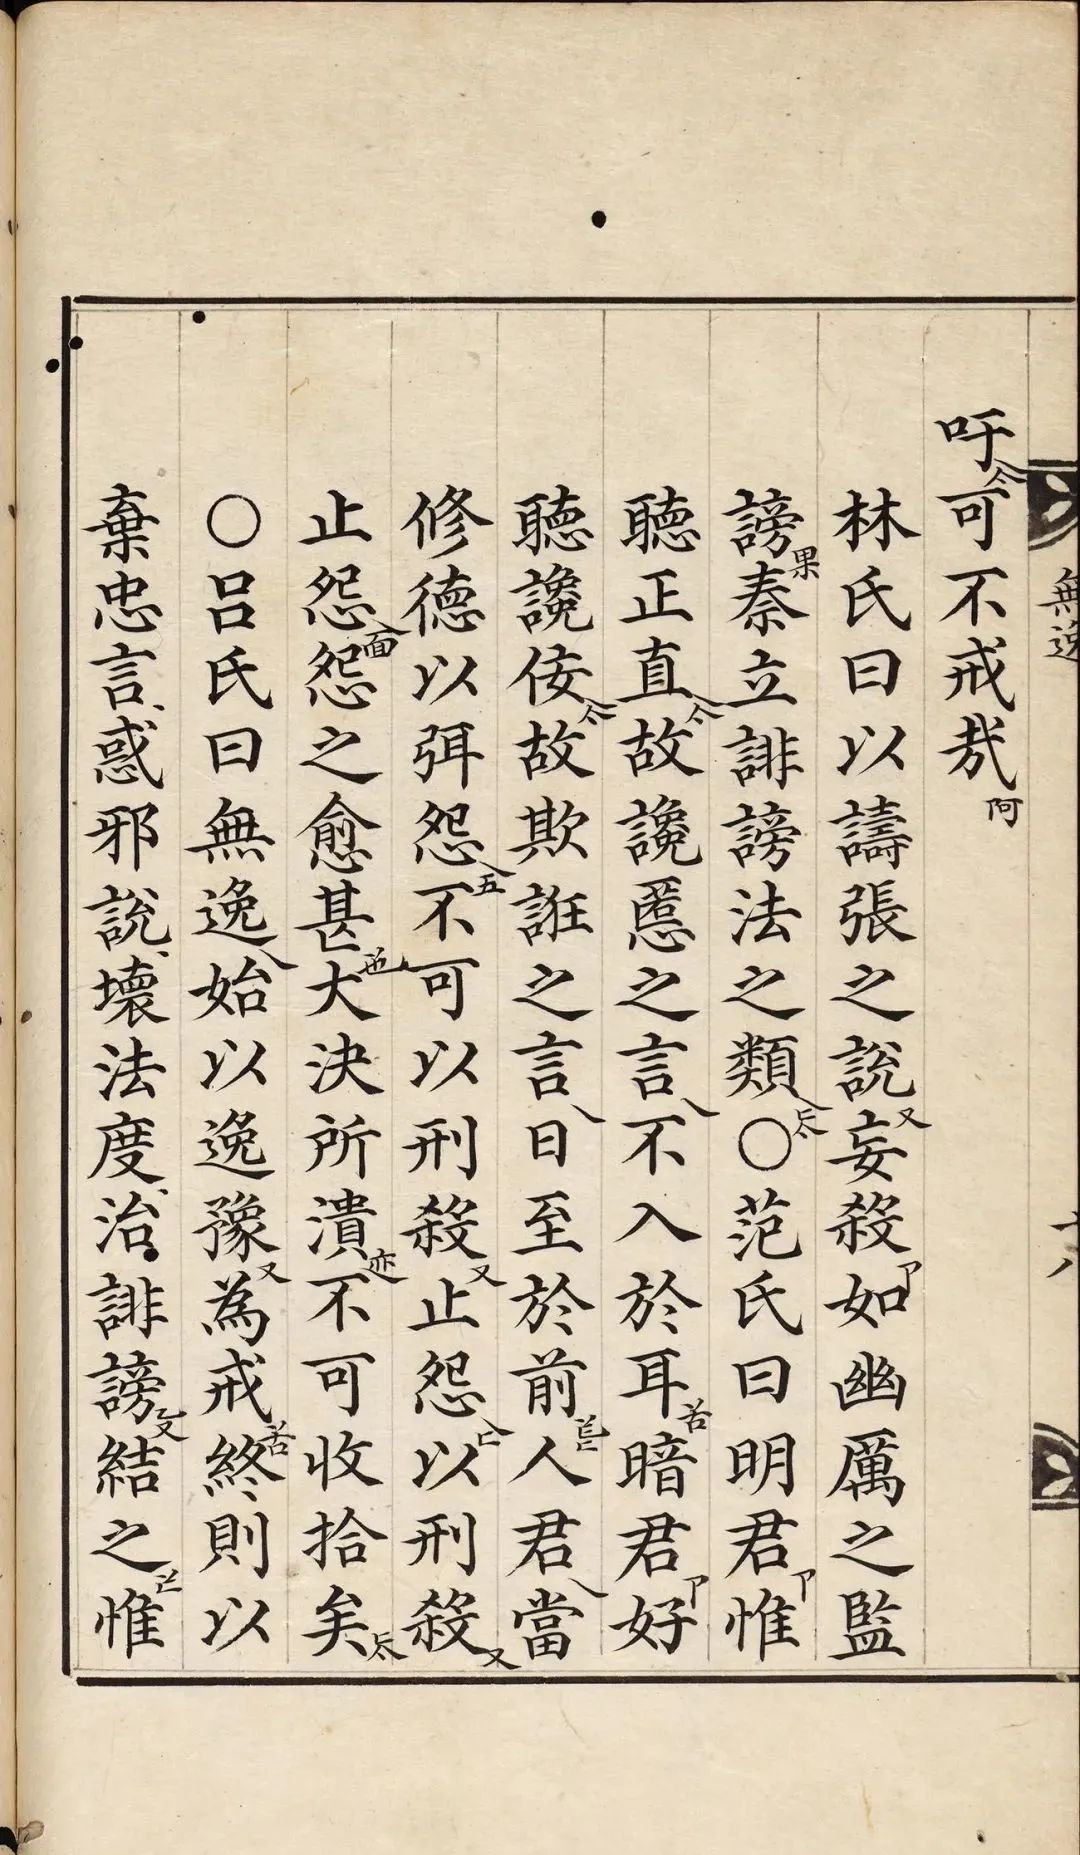 無逸
十八
吁可不戒哉
林氏曰以譸張之說妄殺如幽厲之監
謗秦立誹謗法之類○范氏曰明君惟
聽正直故讒慝之言不入於耳暗君好
聽讒佞故欺誑之言日至於前人君當
修德以弭怨不可以刑殺止怨以刑殺
止怨怨之愈甚大決所潰不可收拾矣
○呂氏曰無逸始以逸豫為戒終則以
棄忠言惑邪說壞法度治誹謗結之惟